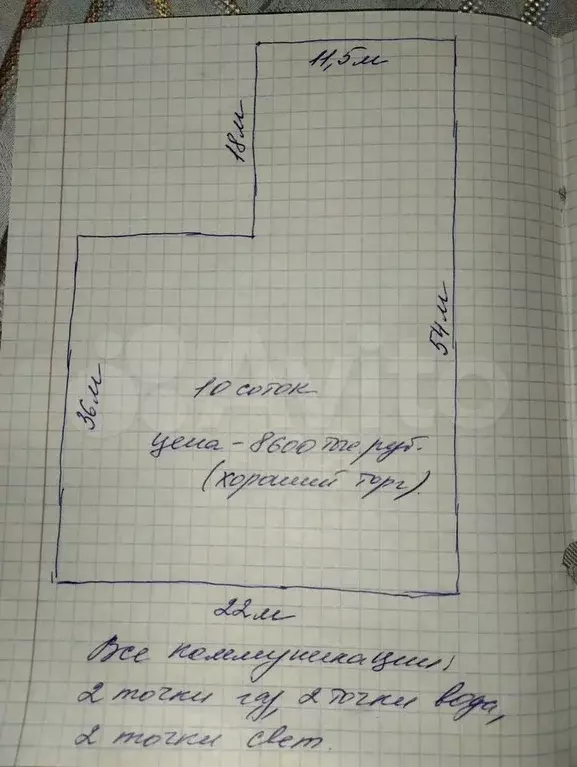 11,5м
18м
54м
36м
10 соток
цена - 8600 тыс руб.
(хороший торг).
22м
Все коммуникации:
2 точки газ, 2 точки вода,
2 точки свет.
Avito